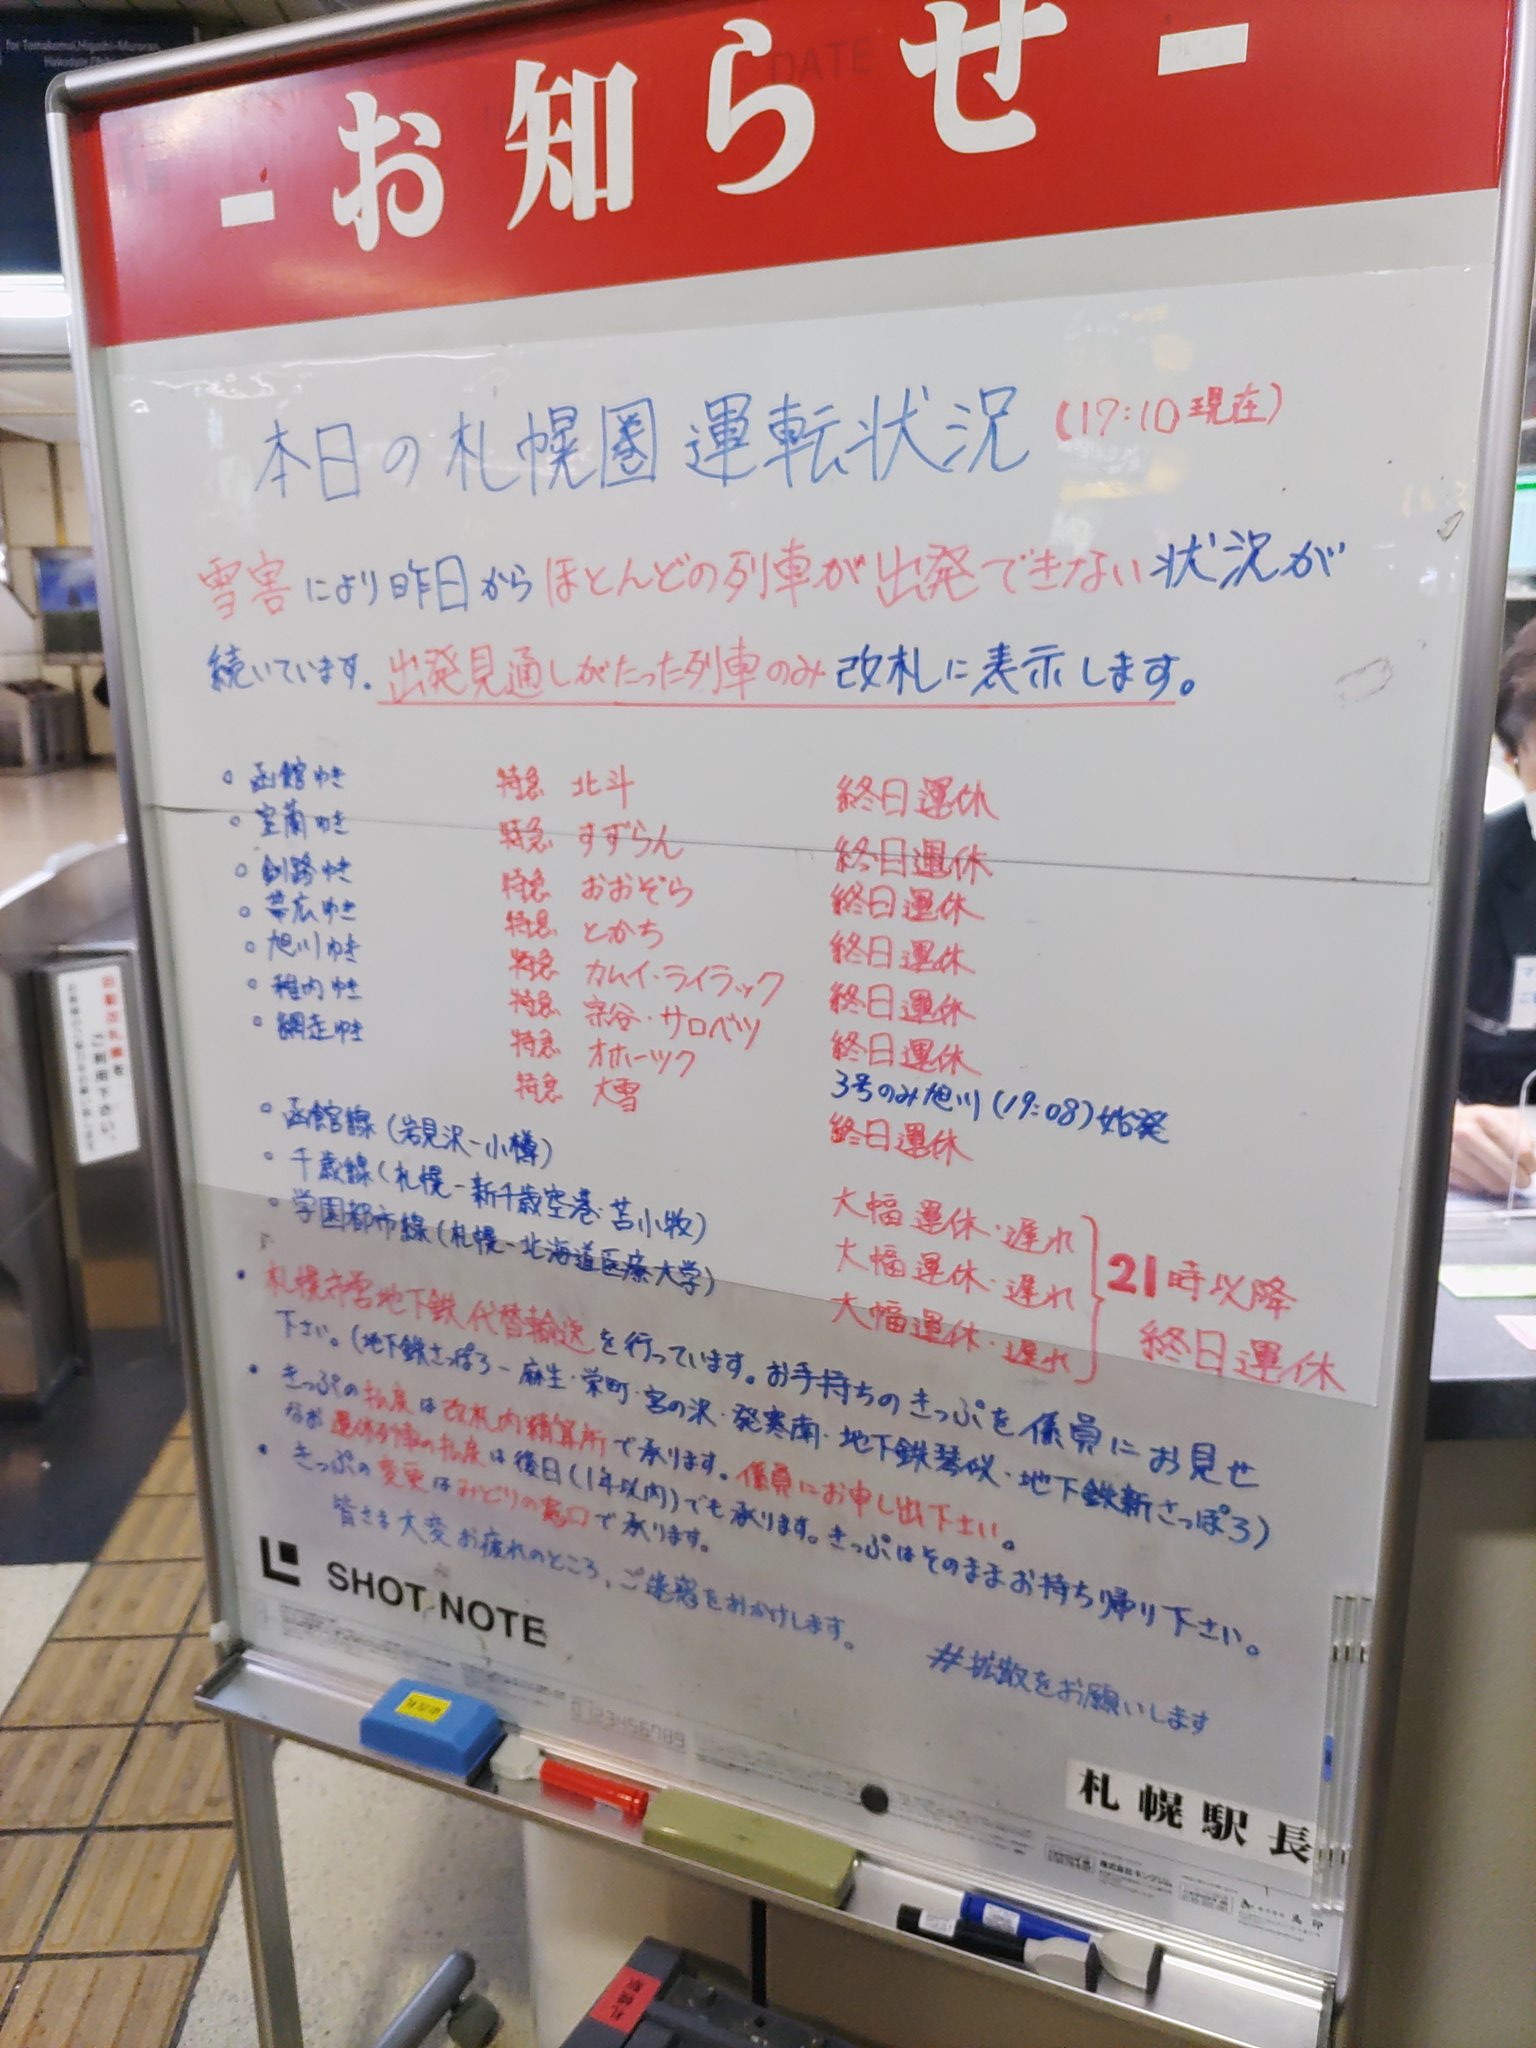 for Tomakomai, Higashi-Muroran,
DATE
- お知らせ -
本日の札幌圏運転状況 (17:10現在)
雪害により昨日からほとんどの列車が出発できない状況が
続いています。出発見通しがたった列車のみ改札に表示します。
。函館ゆき 特急 北斗 終日運休
。室蘭ゆき 特急 すずらん 終日運休
。釧路ゆき 特急 おおぞら 終日運休
。帯広ゆき 特急 とかち 終日運休
。旭川ゆき 特急 カムイ・ライラック 終日運休
。稚内ゆき 特急 宗谷・サロベツ 終日運休
。網走ゆき 特急 オホーツク 3号のみ旭川(19:08)始発
特急 大雪 終日運休
。函館線(岩見沢-小樽) 大幅運休・遅れ
。千歳線(札幌-新千歳空港・苫小牧) 大幅運休・遅れ
。学園都市線(札幌-北海道医療大学) 大幅運休・遅れ
21時以降
終日運休
・札幌市営地下鉄代替輸送を行っています。お手持ちのきっぷを係員にお見せ
下さい。(地下鉄さっぽろ-麻生・栄町・宮の沢・発寒南・地下鉄琴似・地下鉄新さっぽろ)
・きっぷの払戻は改札内精算所で承ります。係員にお申し出下さい。
なお運休列車の払戻は後日(1年以内)でも承ります。きっぷはそのままお持ち帰り下さい。
・きっぷの変更はみどりの窓口で承ります。
皆さま大変お疲れのところ、ご迷惑をおかけします。
#拡散をお願いします
SHOT NOTE
0123456789
札幌駅長